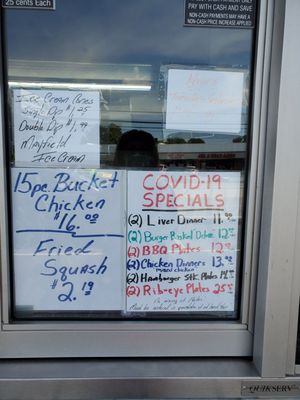 25 cents Each
PAY WITH CASH AND SAVE
NON-CASH PAYMENTS MAY HAVE
AN PRICE INCREASE APPLIED
Ice Cream Cones
Single Dip $1.25
Double Dip $1.99
Mayfield
Ice Cream
Hours
15 pc. Bucket
Chicken
$16.00
Fried
Squash
$2.19
COVID-19
SPECIALS
(2) Liver Dinner 11.
(2) Burger Basket 12.
(2) BBQ Plates 12.
(2) Chicken Dinners 13.
mixed chicken
(2) Hamburger Stk. Plates 14.
(2) Rib-eye Plates 25.
No mixing of Plates
QUIKSERV